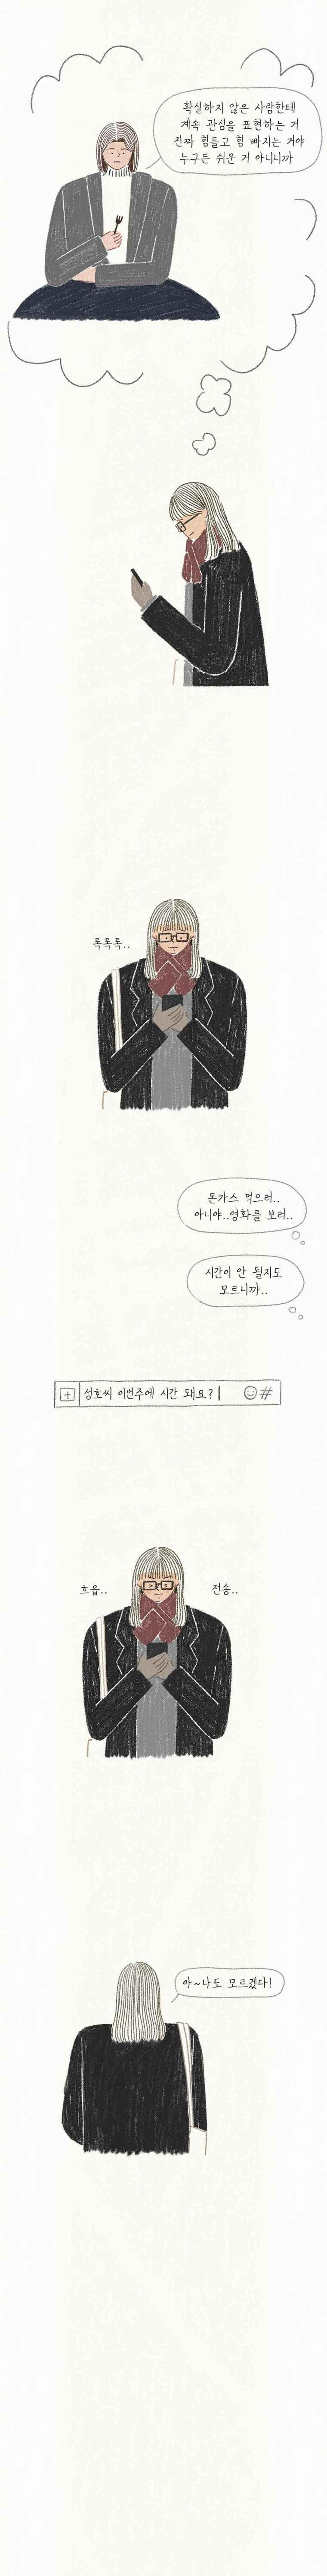 확실하지 않은 사람한테
계속 관심을 표현하는 거
진짜 힘들고 힘 빠지는 거야
누구든 쉬운 거 아니니까
톡톡톡..
돈가스 먹으러..
아니야..영화를 보러..
시간이 안 될지도
모르니까..
성호씨 이번주에 시간 돼요?
#
흐읍..
전송..
아~나도 모르겠다!